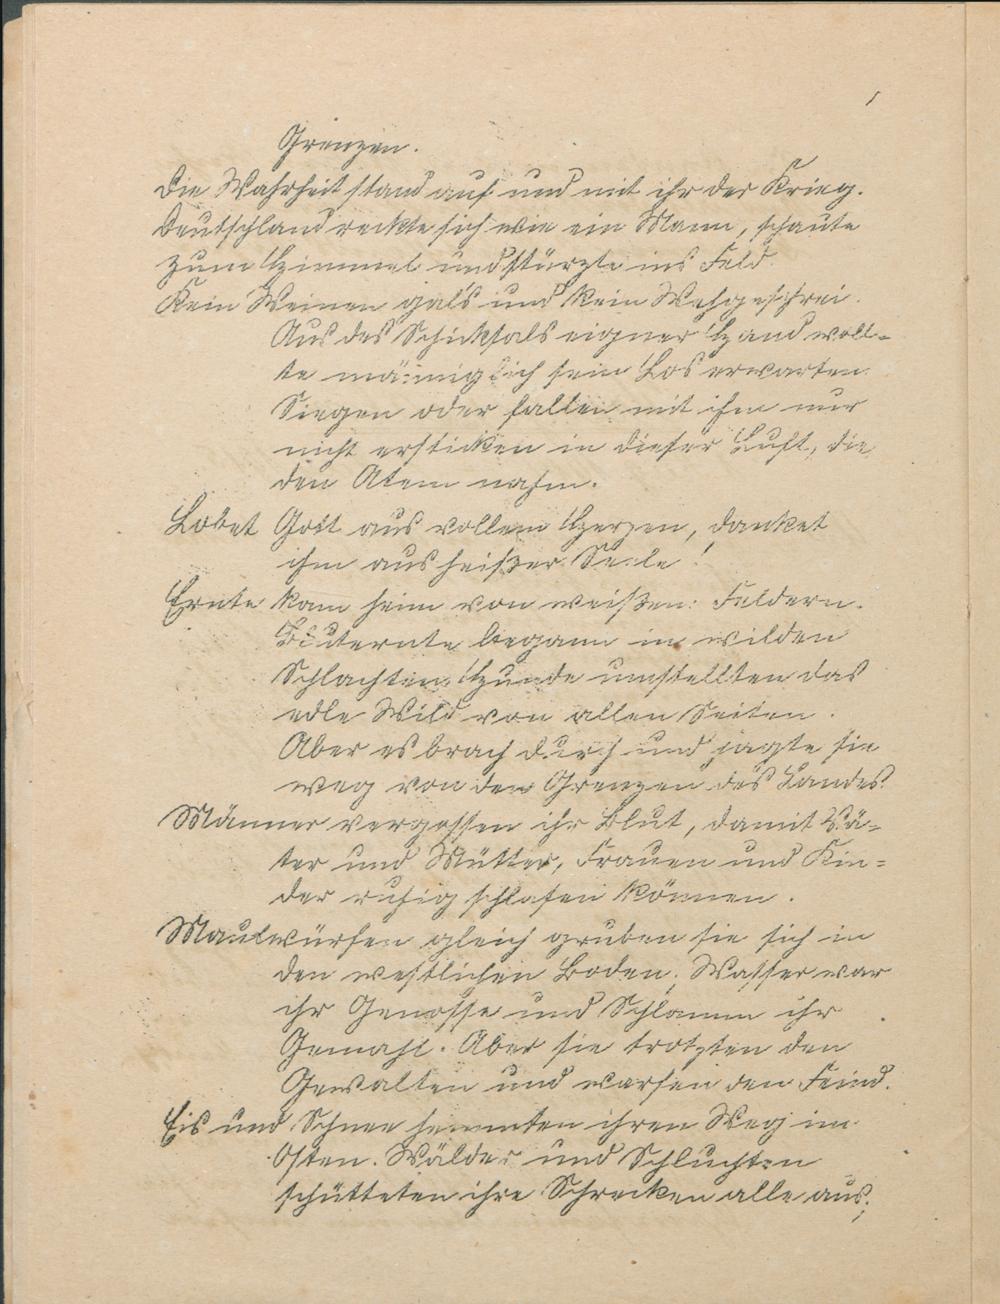 Grenzen.
Die Wahrheit stand auf und mit ihr der Krieg.
Deutschland reckte sich wie ein Mann, schaute
zum Himmel und stürzte ins Feld.
Kein Weinen gab's und kein Wehgeschrei.
Aus des Schicksals eigner Hand woll-
te männiglich sein Los erwarten.
Siegen oder fallen mit ihm nur
nicht ersticken in dieser Luft, die
den Atem nahm.
Lobet Gott aus vollem Herzen, danket
ihm aus heißer Seele!
Ernte kam heim von weißen Feldern.
Bluternte begann in wilden
Schlachten. Hunde umstellten das
edle Wild von allen Seiten.
Aber es brach durch und jagte sie
weg von den Grenzen des Landes.
Männer vergossen ihr Blut, damit Vä-
ter und Mütter, Frauen und Kin-
der ruhig schlafen können.
Maulwürfen gleich gruben sie sich in
den westlichen Boden. Wasser war
ihr Genosse und Schlamm ihr
Gemahl. Aber sie trotzten den
Gewalten und warfen den Feind.
Eis und Schnee hemmten ihren Weg im
Osten. Wälder und Schluchten
schütteten ihre Schrecken alle aus;